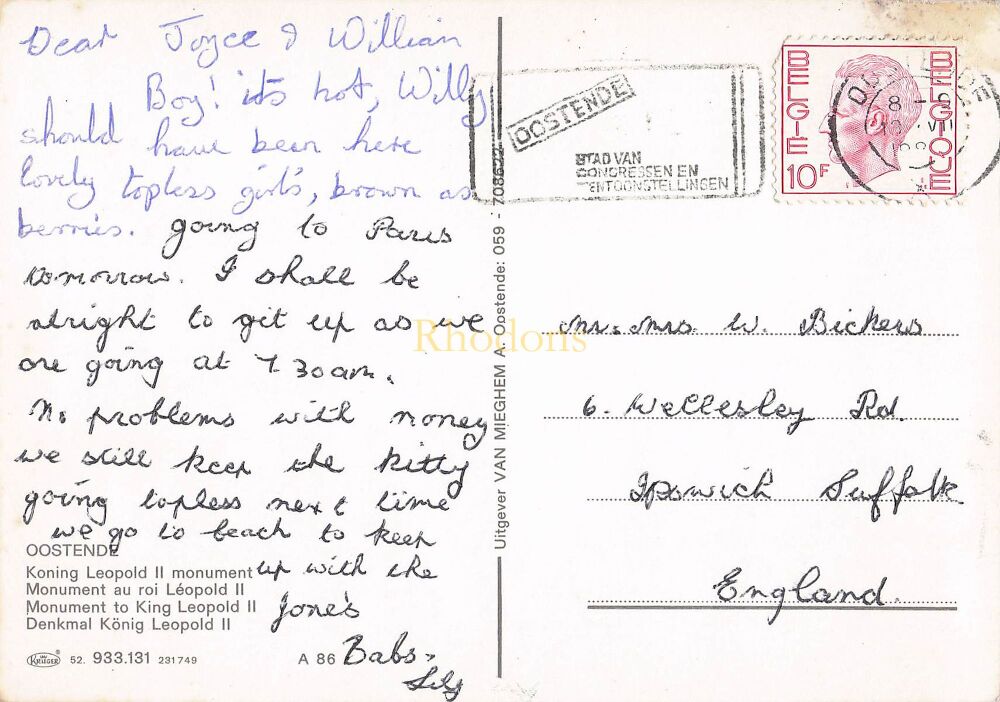 Dear Joyce & Willian
Boy! its hot, Willy
should have been here
lovely topless girls, brown as
berries. going to Paris
tomorrow. I shall be
alright to git up as we
are going at 7.30am.
No problems with money
we still keep the kitty
going topless next time
we go to beach to keep
up with the
Jone's
Babs.
OOSTENDE
Koning Leopold II monument
Monument au roi Léopold II
Monument to King Leopold II
Denkmal König Leopold II
KRÜGER 52. 933.131 231749
A 86
Uitgever VAN MIEGHEM A. Oostende: 059 - 708622
OOSTENDE
STAD VAN
CONGRESSEN EN
TENTOONSTELLINGEN
BELGIE BELGIQUE
10F
8 -9
Mr. Mrs W. Bickers
6. Wellesley Rd.
Ipswich Suffolk
England.
Rhodons